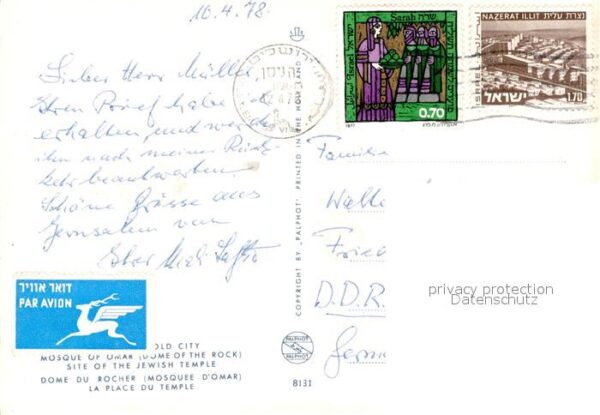 10.4.78
Lieber Herr Müller,
Ihren Brief habe
erhalten und werde
ihn nach meiner Rück-
kehr beantworten
Schöne Grüsse aus
Jerusalem von
Ihrer
דואר אוויר
PAR AVION
OLD CITY
MOSQUE OF OMAR (DOME OF THE ROCK)
SITE OF THE JEWISH TEMPLE
DOME DU ROCHER (MOSQUEE D'OMAR)
LA PLACE DU TEMPLE
COPYRIGHT BY „PALPHOT" PRINTED IN THE HOLY LAND
PALPHOT
8131
Sarah שרה
0.70
1977
NAZERAT ILLIT נצרת עלית
ISRAEL
ישראל
1.70
Familie
D.D.R.
privacy protection
Datenschutz